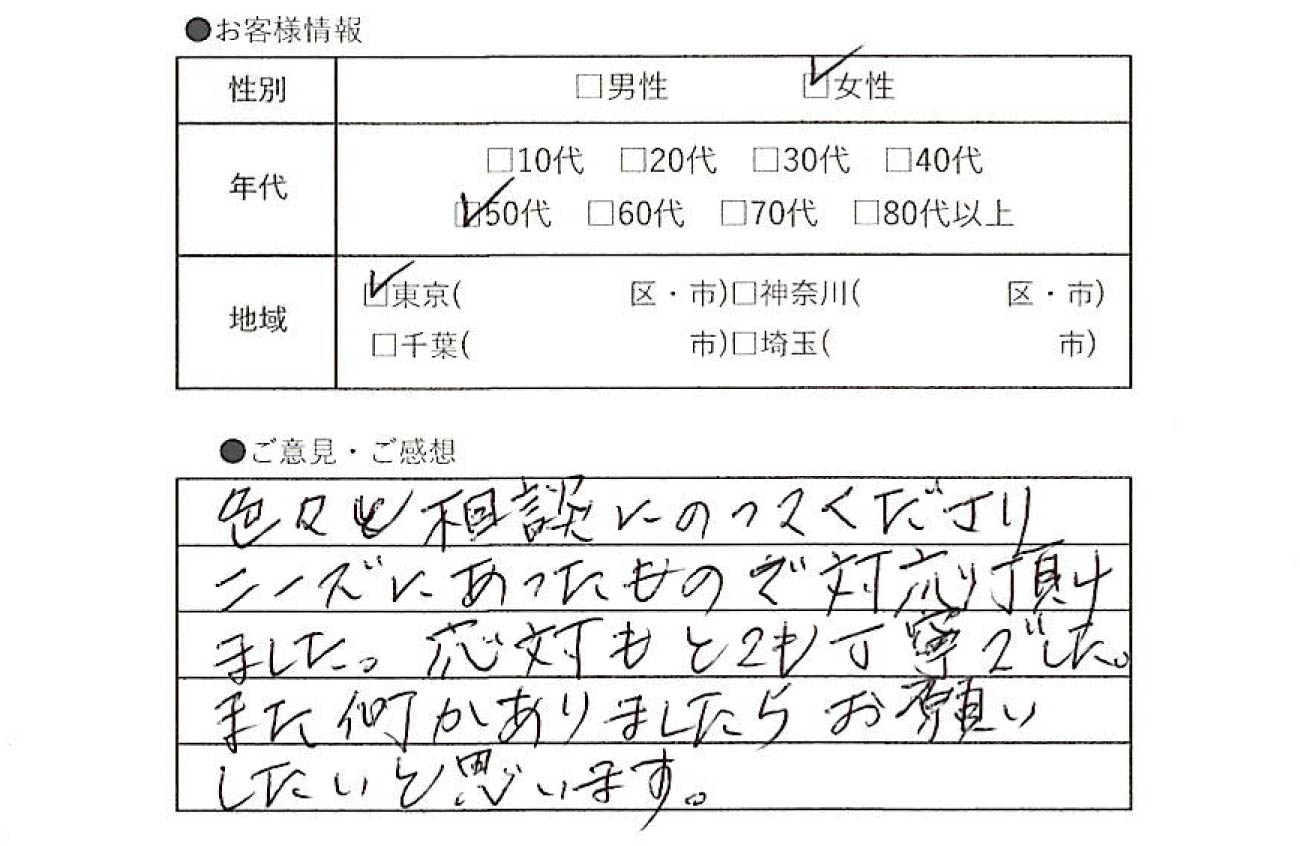 ●お客様情報
性別 □男性 ☑女性
年代 □10代 □20代 □30代 □40代
☑50代 □60代 □70代 □80代以上
地域 ☑東京( 区・市)□神奈川( 区・市)
□千葉( 市)□埼玉( 市)
●ご意見・ご感想
色々と相談にのってくださり
ニーズにあったもので対応頂け
ました。応対もとても丁寧でした。
また何かありましたらお願い
したいと思います。